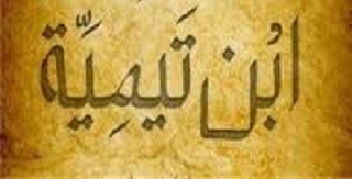 ابْن تَيمِيّة